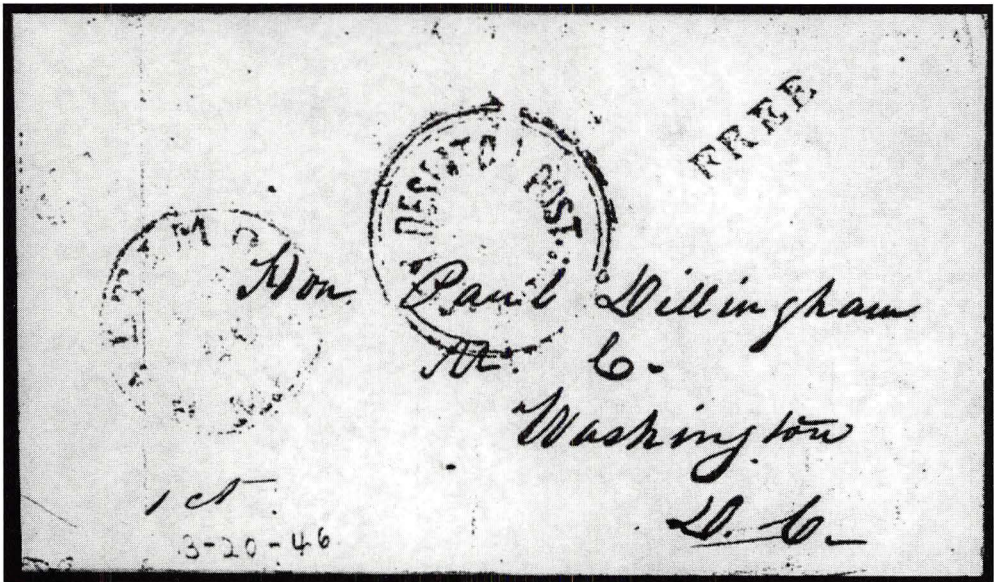 FREE
DESPATCH POST
Hon. Paul Dillingham
M. C.
Washington
D. C.
1 ct
3-20-46